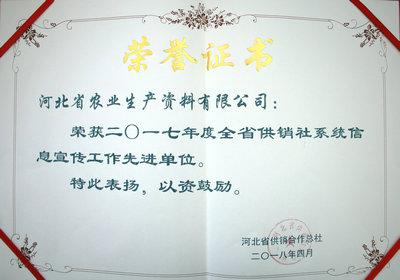 荣誉证书
河北省农业生产资料有限公司：
荣获二〇一七年度全省供销社系统信
息宣传工作先进单位。
特此表扬，以资鼓励。
河北省供销合作总社
二〇一八年四月